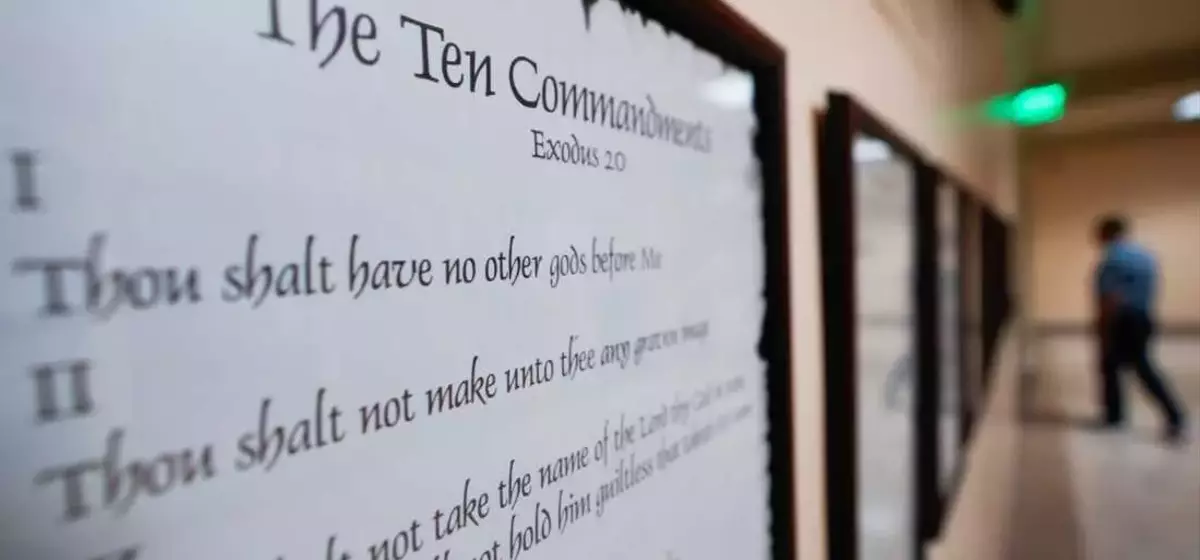 The Ten Commandments
Exodus 20
I
Thou shalt have no other gods before Me
II
Thou shalt not make unto thee any graven image
not take the name of the Lord thy God in
not hold him guiltless that